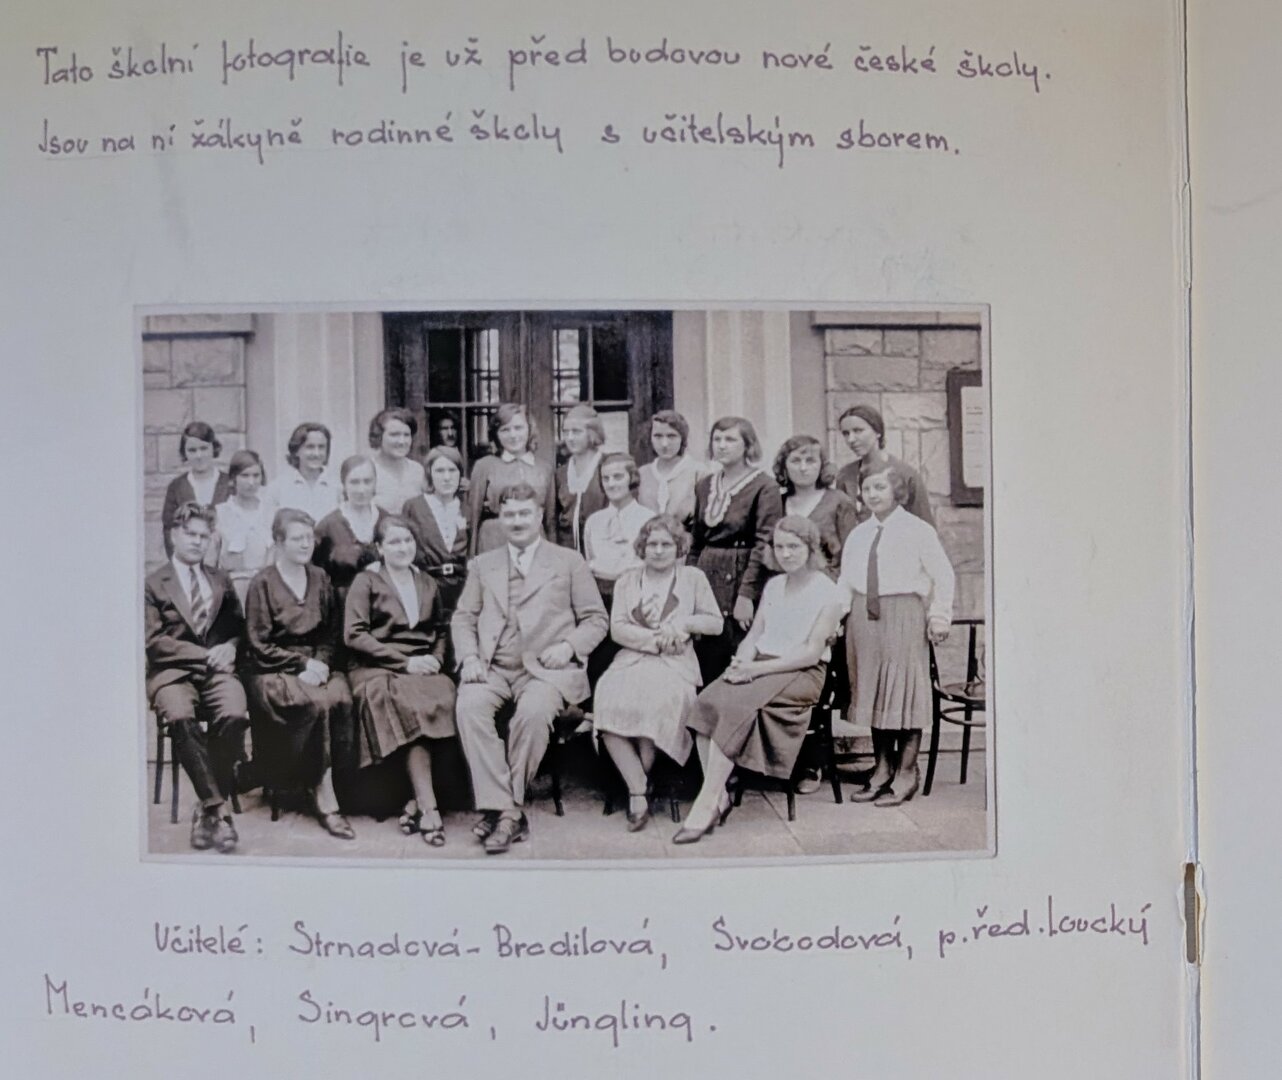 Tato školní fotografie je už před budovou nové české školy.
Jsou na ní žákyně rodinné školy s učitelským sborem.
Učitelé: Strnadová-Brodilová, Svobodová, p.řed.Loucký
Mencáková, Singrová, Jüngling.